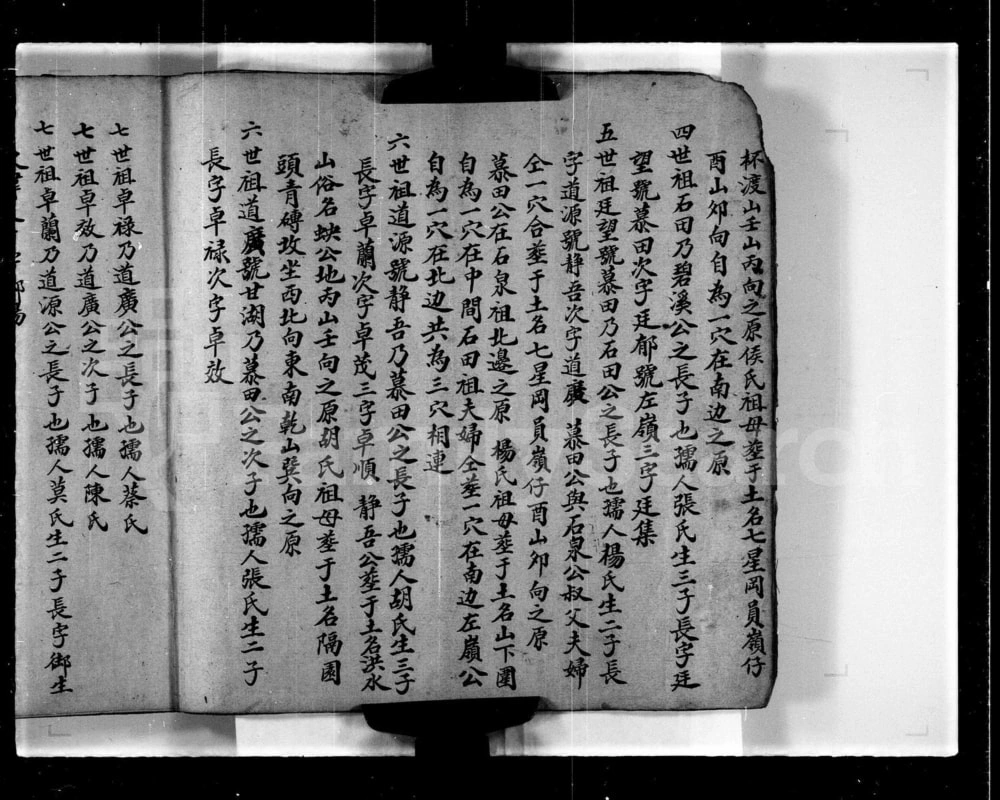 杯渡山壬山丙向之原侯氏祖母塟于土名七星岡員嶺仔
酉山夘向自為一穴在南边之原
四世祖石田乃碧溪公之長子也孺人張氏生三子長字廷
望號慕田次字廷郁號左嶺三字廷集
五世祖廷望號慕田乃石田公之長子也孺人楊氏生二子長
字道源號静吾次字道廣 慕田公與石泉公叔父夫婦
仝一穴合塟于土名七星岡員嶺仔酉山夘向之原
慕田公在石泉祖北邊之原 楊氏祖母塟于土名山下圍
自為一穴在中間石田祖夫婦仝塟一穴在南边左嶺公
自為一穴在北边共為三穴相連
六世祖道源號静吾乃慕田公之長子也孺人胡氏生三子
長字卓蘭次字卓茂三字卓順 静吾公塟于土名洪水
山俗名蚺公地丙山壬向之原胡氏祖母塟于土名隔圍
頭青磚坟坐西北向東南乾山巽向之原
六世祖道廣號甘湖乃慕田公之次子也孺人張氏生二子
長字卓禄次字卓效
七世祖卓禄乃道廣公之長子也孺人蔡氏
七世祖卓效乃道廣公之次子也孺人陳氏
七世祖卓蘭乃道源公之長子也孺人莫氏生二子長字御生